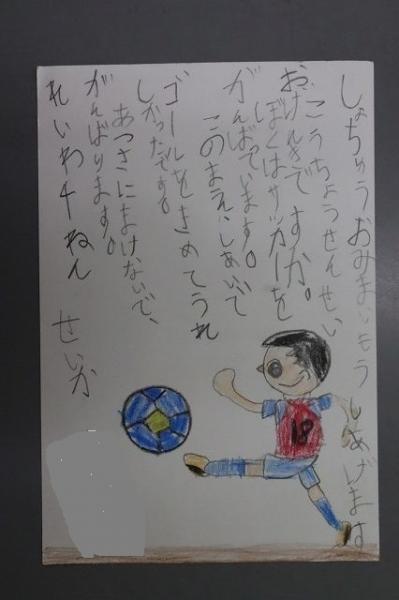 しょちゅうおみまいもうしあげます
こうちょうせんせい
おげんきですか。
ぼくはサッカーを
がんばっています。
このまえ、しあいで
ゴールをきめてうれ
しかったです。
あつさにまけないで、
がんばります。
れいわ4ねん せいか
18